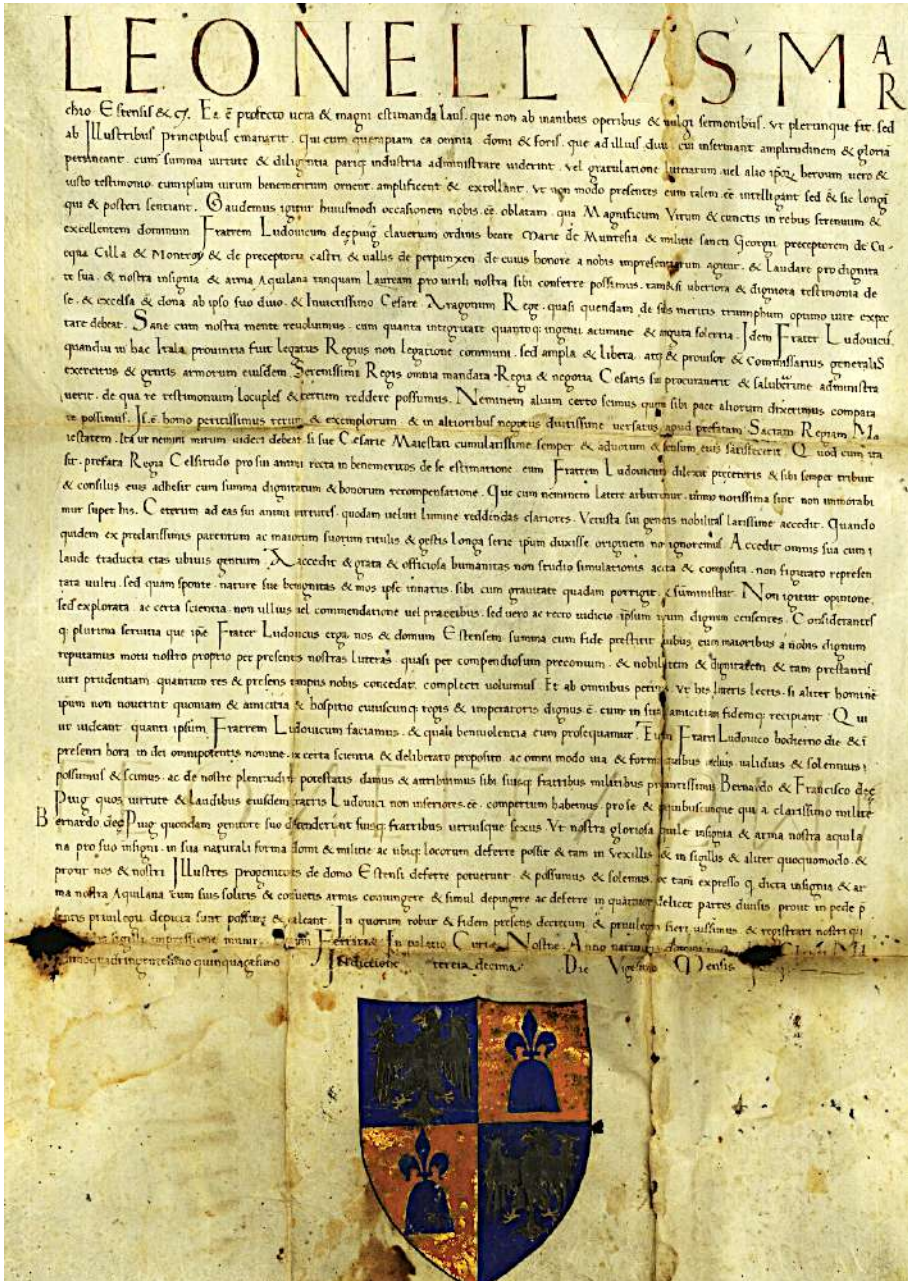 LEONELLVS MAR
chio Estensis & cʒ. Ea ē profecto uera & magni estimanda laus. que non ab inanibus operibus & uulgi sermonibus. vt plerunque fit. sed
ab Illustribus principibus emanarit. Qui cum quempiam ea omnia domi & foris. que ad illius diui cui inseruiant amplitudinem & gloriā
pertineant. cum summa uirtute & diligentia pariqʒ industria administrare uiderint. vel gratulatione litterarum uel alio uero &
iusto testimonio. cum ipsum uirum benemeritum ornent. amplificent & extollant. vt non modo presentes eum talem eē intelligant sed & sic longi
qui & posteri sentiant. Gaudemus igitur huiusmodi occasionem nobis eē oblatam. qua Magnificum Virum & cunctis in rebus serenuum &
excellentem dominum Fratrem Ludouicum deçpuig clauerum ordinis beate Marie de Muntesia & militie sancti Georgii preceptorem de
Cilla & Montroy & de preceptoria castri & uallis de perpunxen. de cuius honore a nobis impresentiarum agitur. & laudare pro dignita
te sua. & nostra insignia & arma Aquilana tanquam Lauream pro uirili nostra sibi conferre possimus. tametsi uberiora & digniora testimonia de
se. & excelsa & dona ab ipso suo diuo. & Inuictissimo Cesare Aragonum Rege. quasi quendam de suis meritis triumphum optimo iure expec
tare debeat. Sane cum nostra mente reuoluimus. cum quanta integritate quantoqʒ ingenii acumine & solertia. Idem Frater Ludouicus.
quandiu in hac Itala prouintia fuit legatus Regius non legatione communi. sed ampla & libera. atqʒ & prouisor & Commissarius generalis
exercitus & gentis armorum eiusdem Serenissimi Regis omnia mandata Regia & negotia Cesaris sui procurauerit & saluberrime administra
uerit. de qua re testimonium locuples & certum reddere possumus. Neminem alium certo scimus quem sibi pace aliorum dixerimus compara
re possimus. Is ē homo peritissimus rerum & exemplorum & in altioribus negotiis diutissime uersatus apud prefatam Sacram Regiam Ma
iestatem. Ita ut nemini mirum uideri debeat si sue Cesarie Maiestati cumulatissime semper & ad uotum & sensum eius satisfecerit. Quod cum ita
sit. prefata Regia Celsitudo pro sui animi recta in benemeritos de se estimatione. eum Fratrem Ludouicum dilexit pre ceteris & sibi semper tribuit
& consiliis eius adhesit cum summa dignitatum & bonorum recompensatione. Que cum neminem latere arbitremur. immo notissima sint. non immorabi
mur super his. Ceterum ad eas sui animi uirtutes. quodam ueluti lumine reddendas clariores. Vetusta sui generis nobilitas latissime accedit. Quando
quidem ex preclarissimis parentum ac maiorum suorum titulis & gestis longa serie ipsum duxisse originem non ignoremus. Accedit omnis sua cum
laude traducta etas ubiuis gentium. Accedit & grata & officiosa humanitas non studio simulationis acita & composita. non figurato represen
tata uultu. sed quam sponte nature sue benignitas & mos ipse innatus. sibi cum grauitate quadam porrigit. & sumministrat. Non igitur opinione.
sed explorata. ac certa scientia. non ullius uel commendatione uel precibus. sed uero ac recto iudicio. ipsum uirum dignum censentes. Considerantes
qʒ plurima seruitia que ipse Frater Ludouicus erga nos & domum Estensem summa cum fide prestitit quibus eum maioribus a nobis dignum
reputamus motu nostro proprio per presentes nostras litteras. quasi per compendiosum preconium. & nobilitatem & dignitatem & tam prestantis
uiri prudentiam. quantum res & presens tempus nobis concedat. complecti uolumus. Et ab omnibus petimus. vt his litteris lectis. si aliter hominē
ipsum non nouerint quoniam & amicitia & hospitio cuiuscunqʒ regis & imperatoris dignus ē. cum in sua amicitiam fidemqʒ recipiant. Qui
ut uideant quanti ipsum Fratrem Ludouicum faciamus. & quali beniuolentia eum prosequamur. Eidem Fratri Ludouico hodierno die & ī
presenti hora in dei omnipotentis nomine. ex certa scientia & deliberato proposito. ac omni modo uia & forma quibus melius validius & solennius
possumus & scimus. ac de nostre plenitudine potestatis damus & attribuimus sibi suisqʒ fratribus militibus prestantissimis Bernardo & Francisco deç
Puig quos uirtute & laudibus eiusdem fratris Ludouici non inferiores eē. compertum habemus. pro se & quibuscunque qui a clarissimo milite
Bernardo deç Puig quondam genitore suo descenderint suisqʒ fratribus utriusque sexus. Vt nostra gloriosa insignia & arma nostra aquila
na pro suo insigni. in sua naturali forma domi & militie ac ubiqʒ locorum deferre possit & tam in vexillis & in sigillis & aliter quoquomodo. &
prout nos & nostri Illustres progenitores de domo Estensi deferre potuerunt. & possumus & solemus. ac tam expresso q dicta insignia & ar
ma nostra Aquilana cum suis solitis & consuetis armis coniungere & simul depingere ac deferre in quatuor partes diuisis. prout in pede p̄
sentis priuilegii depicta sunt possint & ualeant. In quorum robur & fidem presens decretum & priuilegium fieri iussimus & registrari nostri qʒ
sigilli impressione muniri. Ferrarie In palatio Curie Nostre. Anno natiuitatis
quadringentesimo quinquagesimo Indictione terciadecima. Die Vigesimo Mensis